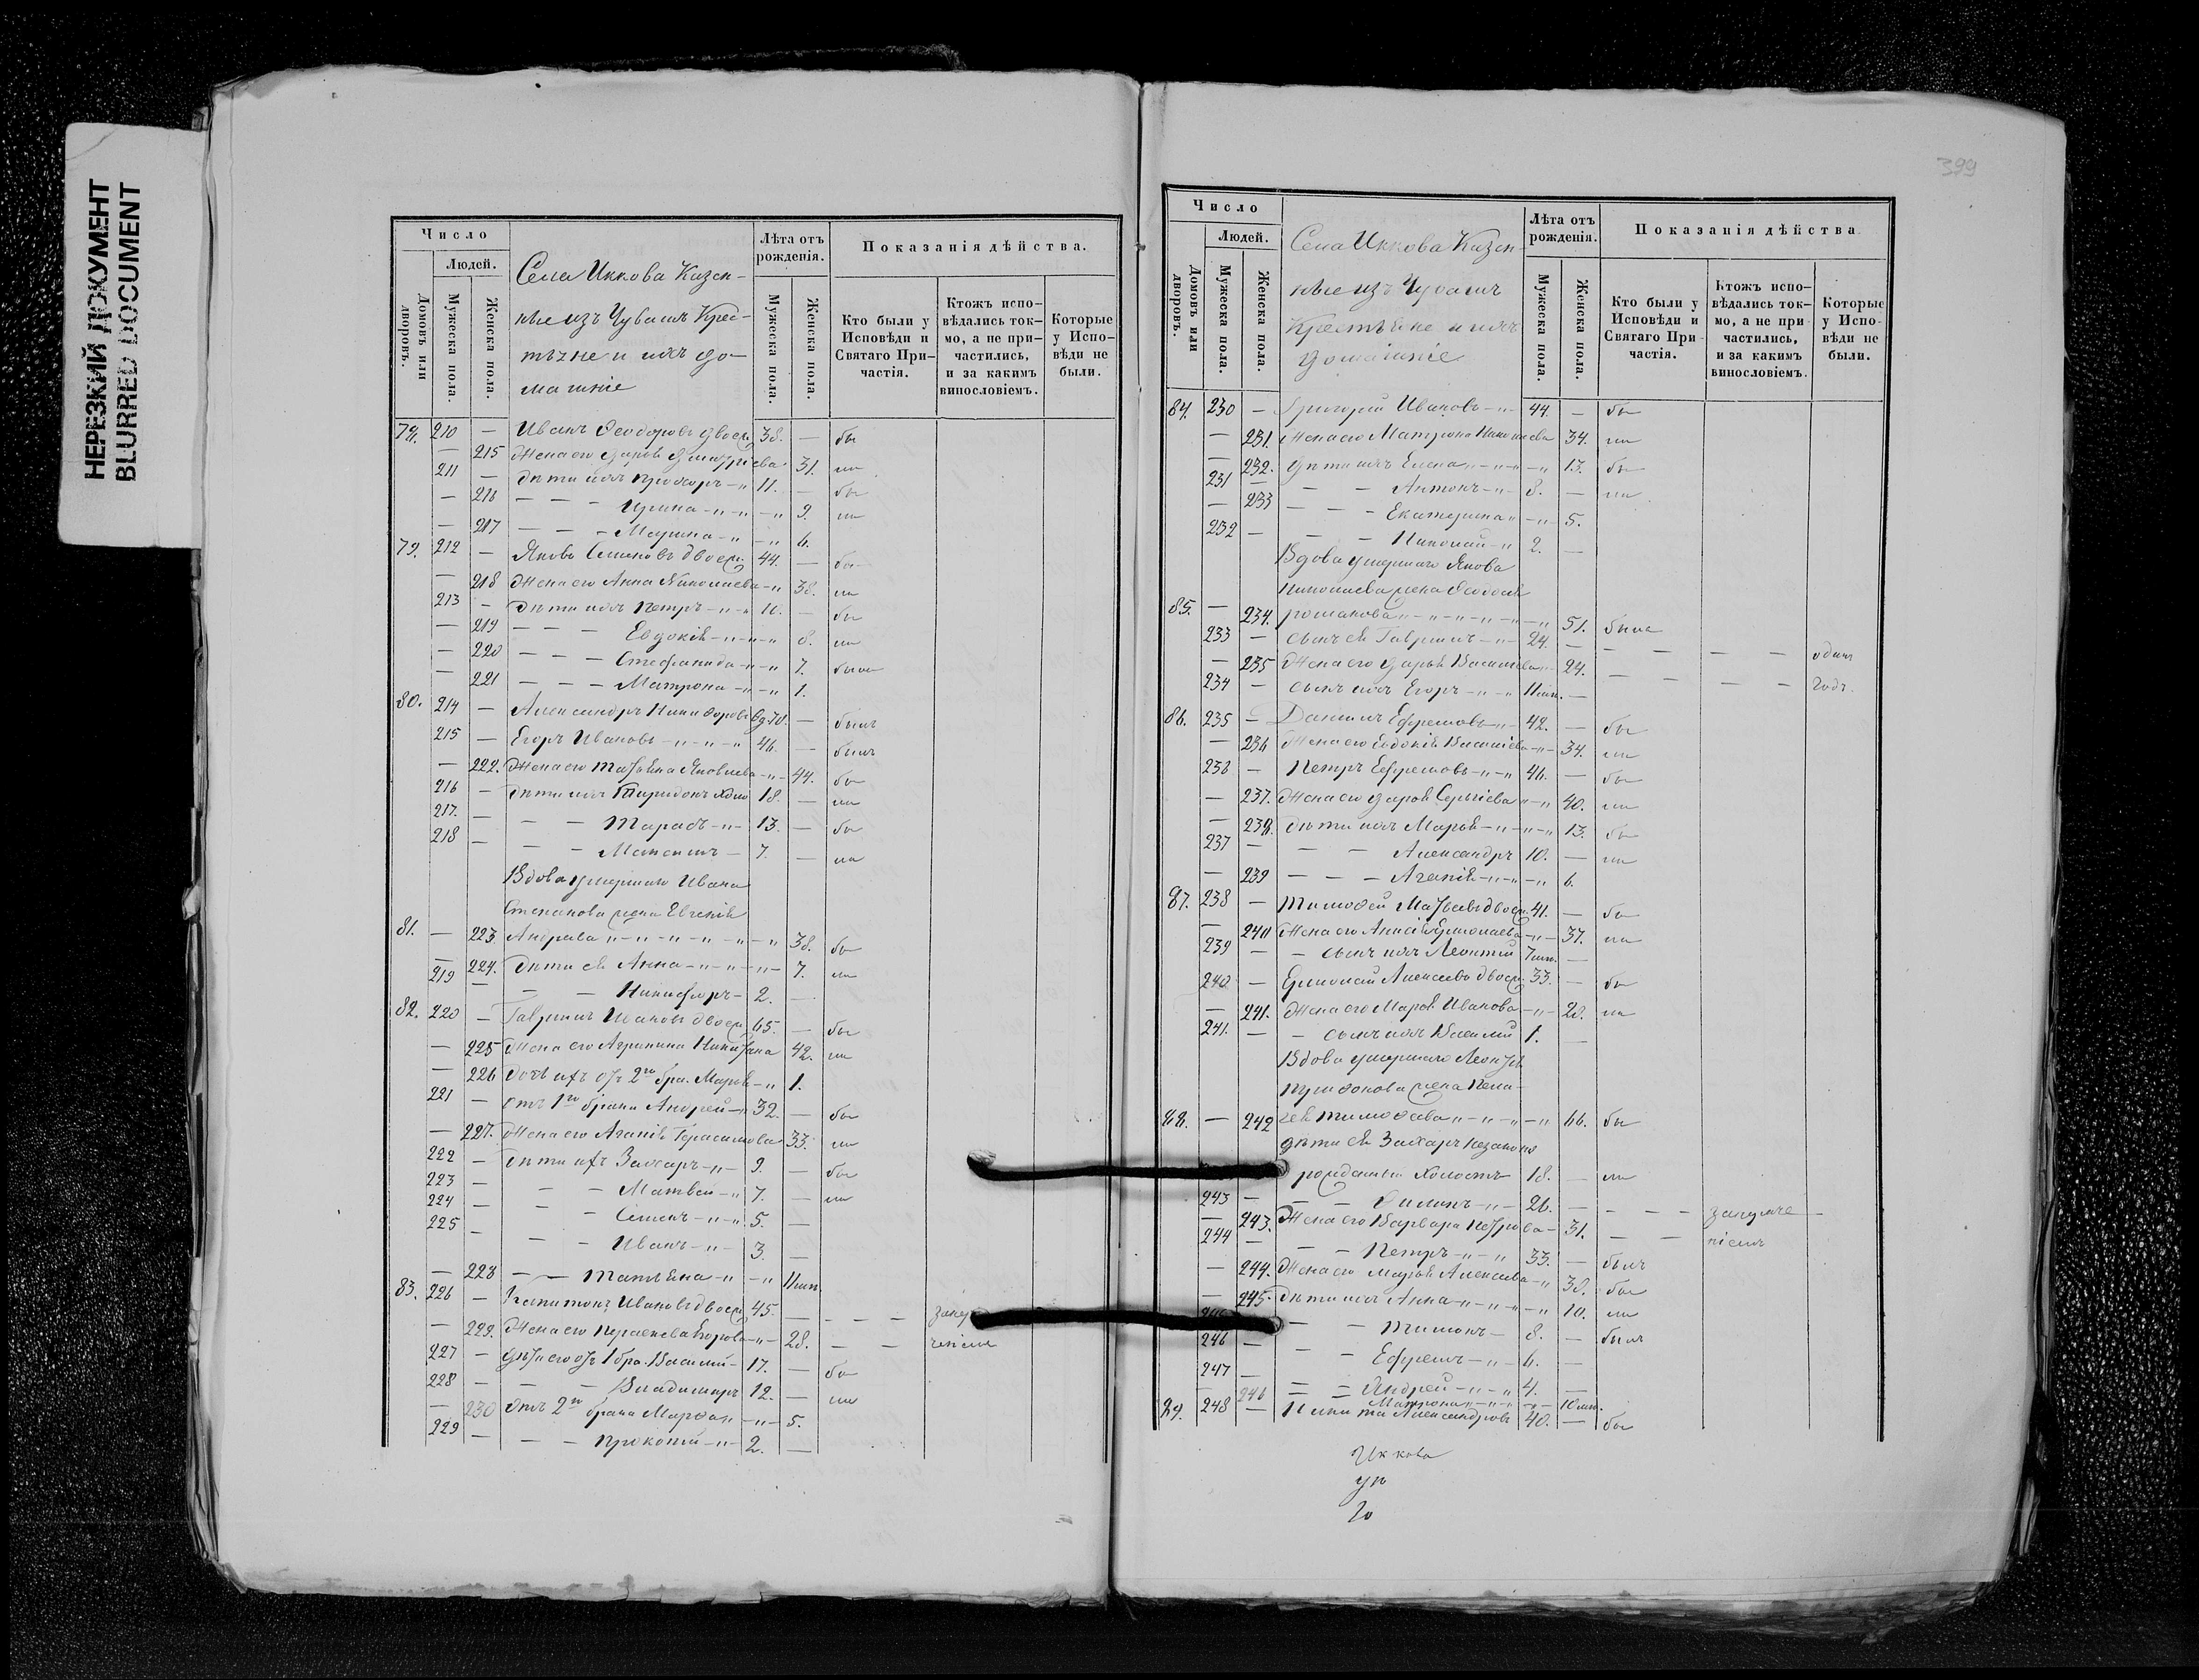 НЕРЕЗКИЙ ДОКУМЕНТ
BLURRED DOCUMENT
Число
Людей.
Домовъ или дворовъ.
Мужеска пола.
Женска пола.
Села Иккова Казен-
ные изъ Чувашъ Крес-
тьяне и ихъ до-
машніе
Лѣта отъ рожденія.
Мужеска пола.
Женска пола.
Показанія дѣйства.
Кто были у Исповѣди и Святаго При-частія.
Ктожъ испо-вѣдались ток-мо, а не при-частились, и за какимъ винословіемъ.
Которые у Испо-вѣди не были.
78. 210 — Иванъ Ѳеодоровъ двоеж. 38. — бы
— 215 Жена его Дарья Дмитріева 31. ли
211 — Дѣти ихъ Прохоръ 11. — бы
— 216 — — — Ирина 9. ли
— 217 — — — Марина 6.
79. 212 — Яковъ Семеновъ двоеж. 44. — бы
— 218 Жена его Анна Николаева 38. ли
213 — Дѣти ихъ Петръ 10. — бы
— 219 — — — Евдокія 8. ли
— 220 — — — Стефанида 7. была
— 221 — — — Матрона 1.
80. 214 — Александръ Никифоровъ вд. 70. — былъ
215 — Егоръ Ивановъ 46. — былъ
— 222. Жена его Татьяна Яковлева 44. бы
216 — Дѣти ихъ Спиридонъ холо 18. — ли
217. — — — Тарасъ 13. — бы
218 — — — 7. — ли
Вдова умершаго Ивана
Степанова жена Евгенія
81. — 223. Андреева 38. бы
— 224. Дѣти ея Анна 7. ли
219 — — — Никифоръ 2. —
82. 220 — Гаврилъ Ивановъ двоеж. 65. — бы
— 225 Жена его Агрипина Никитина 42. ли
— 226 Дочь ихъ отъ 2го бра. Марья 1.
221 — Отъ 1го брака Андрей 32. — бы
— 227. Жена его Агапія Герасимова 33. ли
222 — Дѣти ихъ Захаръ 9. — бы
223 — — — Матвей 7. — ли
224 — — — Семенъ 5. —
225 — — — Иванъ 3. —
— 228 — — Татьяна 11 мѣс.
83. 226 — Капитонъ Ивановъ двоеж. 45. — — — — запер
— 229. Жена его Егорова 28. — — ченіем
227 — Дѣти его отъ 1 бра. Василій 17. — бы
228 — — — Владимиръ 12. — ли
— 230 Отъ 2го брака Марѳа 5.
229 — — — Прокопій 2. —
399
Число
Людей.
Домовъ или дворовъ.
Мужеска пола.
Женска пола.
Села Иккова Казен-
ные изъ Чувашъ
Крестьяне и ихъ
домашніе
Лѣта отъ рожденія.
Мужеска пола.
Женска пола.
Показанія дѣйства
Кто были у Исповѣди и Святаго При-частія.
Ктожъ испо-вѣдались ток-мо, а не при-частились, и за какимъ винословіемъ.
Которые у Испо-вѣди не были.
84. 230 — Григорій Ивановъ 44. — бы
— 231. Жена его Матрона Николаева 34. ли
— 232. Дѣти ихъ Елена 13. бы
231 — — — Антонъ 8. — ли
— 233 — — — Екатерина 5.
232 — — — Николай 2. —
Вдова умершаго Якова
Николаева жена Ѳеодосія
85. — 234. Романова 51. была
233 — Сынъ ея Гаврилъ 24. — — — — — одинъ
— 235 Жена его Дарья Васильева 24. — — — — годъ.
234 — Сынъ ихъ Егоръ 11 мѣс. —
86. 235 — Даниилъ Ефремовъ 42. — бы
— 236 Жена его Евдокія Васильева 34. ли
236 — Петръ Ефремовъ 46. — бы
— 237. Жена его Дарья Сергіева 40. ли
— 238. Дѣти ихъ Марья 13. бы
237 — — — Александръ 10. — ли
— 239 — — — Агапія 6.
87. 238 — Тимоѳей Матвеевъ двоеж. 41. — бы
— 240 Жена его Анна Ермолаева 37. ли
239 — — сынъ ихъ Леонтій 7 мѣс. —
240 — Ермолай Алексеевъ двоеж. 33. — бы
— 241. Жена его Марья Иванова 28. ли
241. — — сынъ ихъ Василій 1. —
Вдова умершаго
жена Пела-
88. — 242 гея Тимоѳеева 66. бы
дѣти ея Захаръ незаконно
рожденный холостъ 18. — ли
243 — — — Филипъ 26. — — — — заключе —
— 243. Жена его Варвара Петрова 31. — — ніемъ
244 — — — Петръ 33. — былъ
— 244. Жена его Марья Алексеева 38. бы
— 245. Дѣти ихъ Анна 10. ли
— — Тимонъ 8. — былъ
246 — — — Ефремъ 6. —
247 — — — Андрей 4. —
— 246 Матрона 10 мѣс.
89. 248 — Никита Александровъ 40. — бы
Иккова